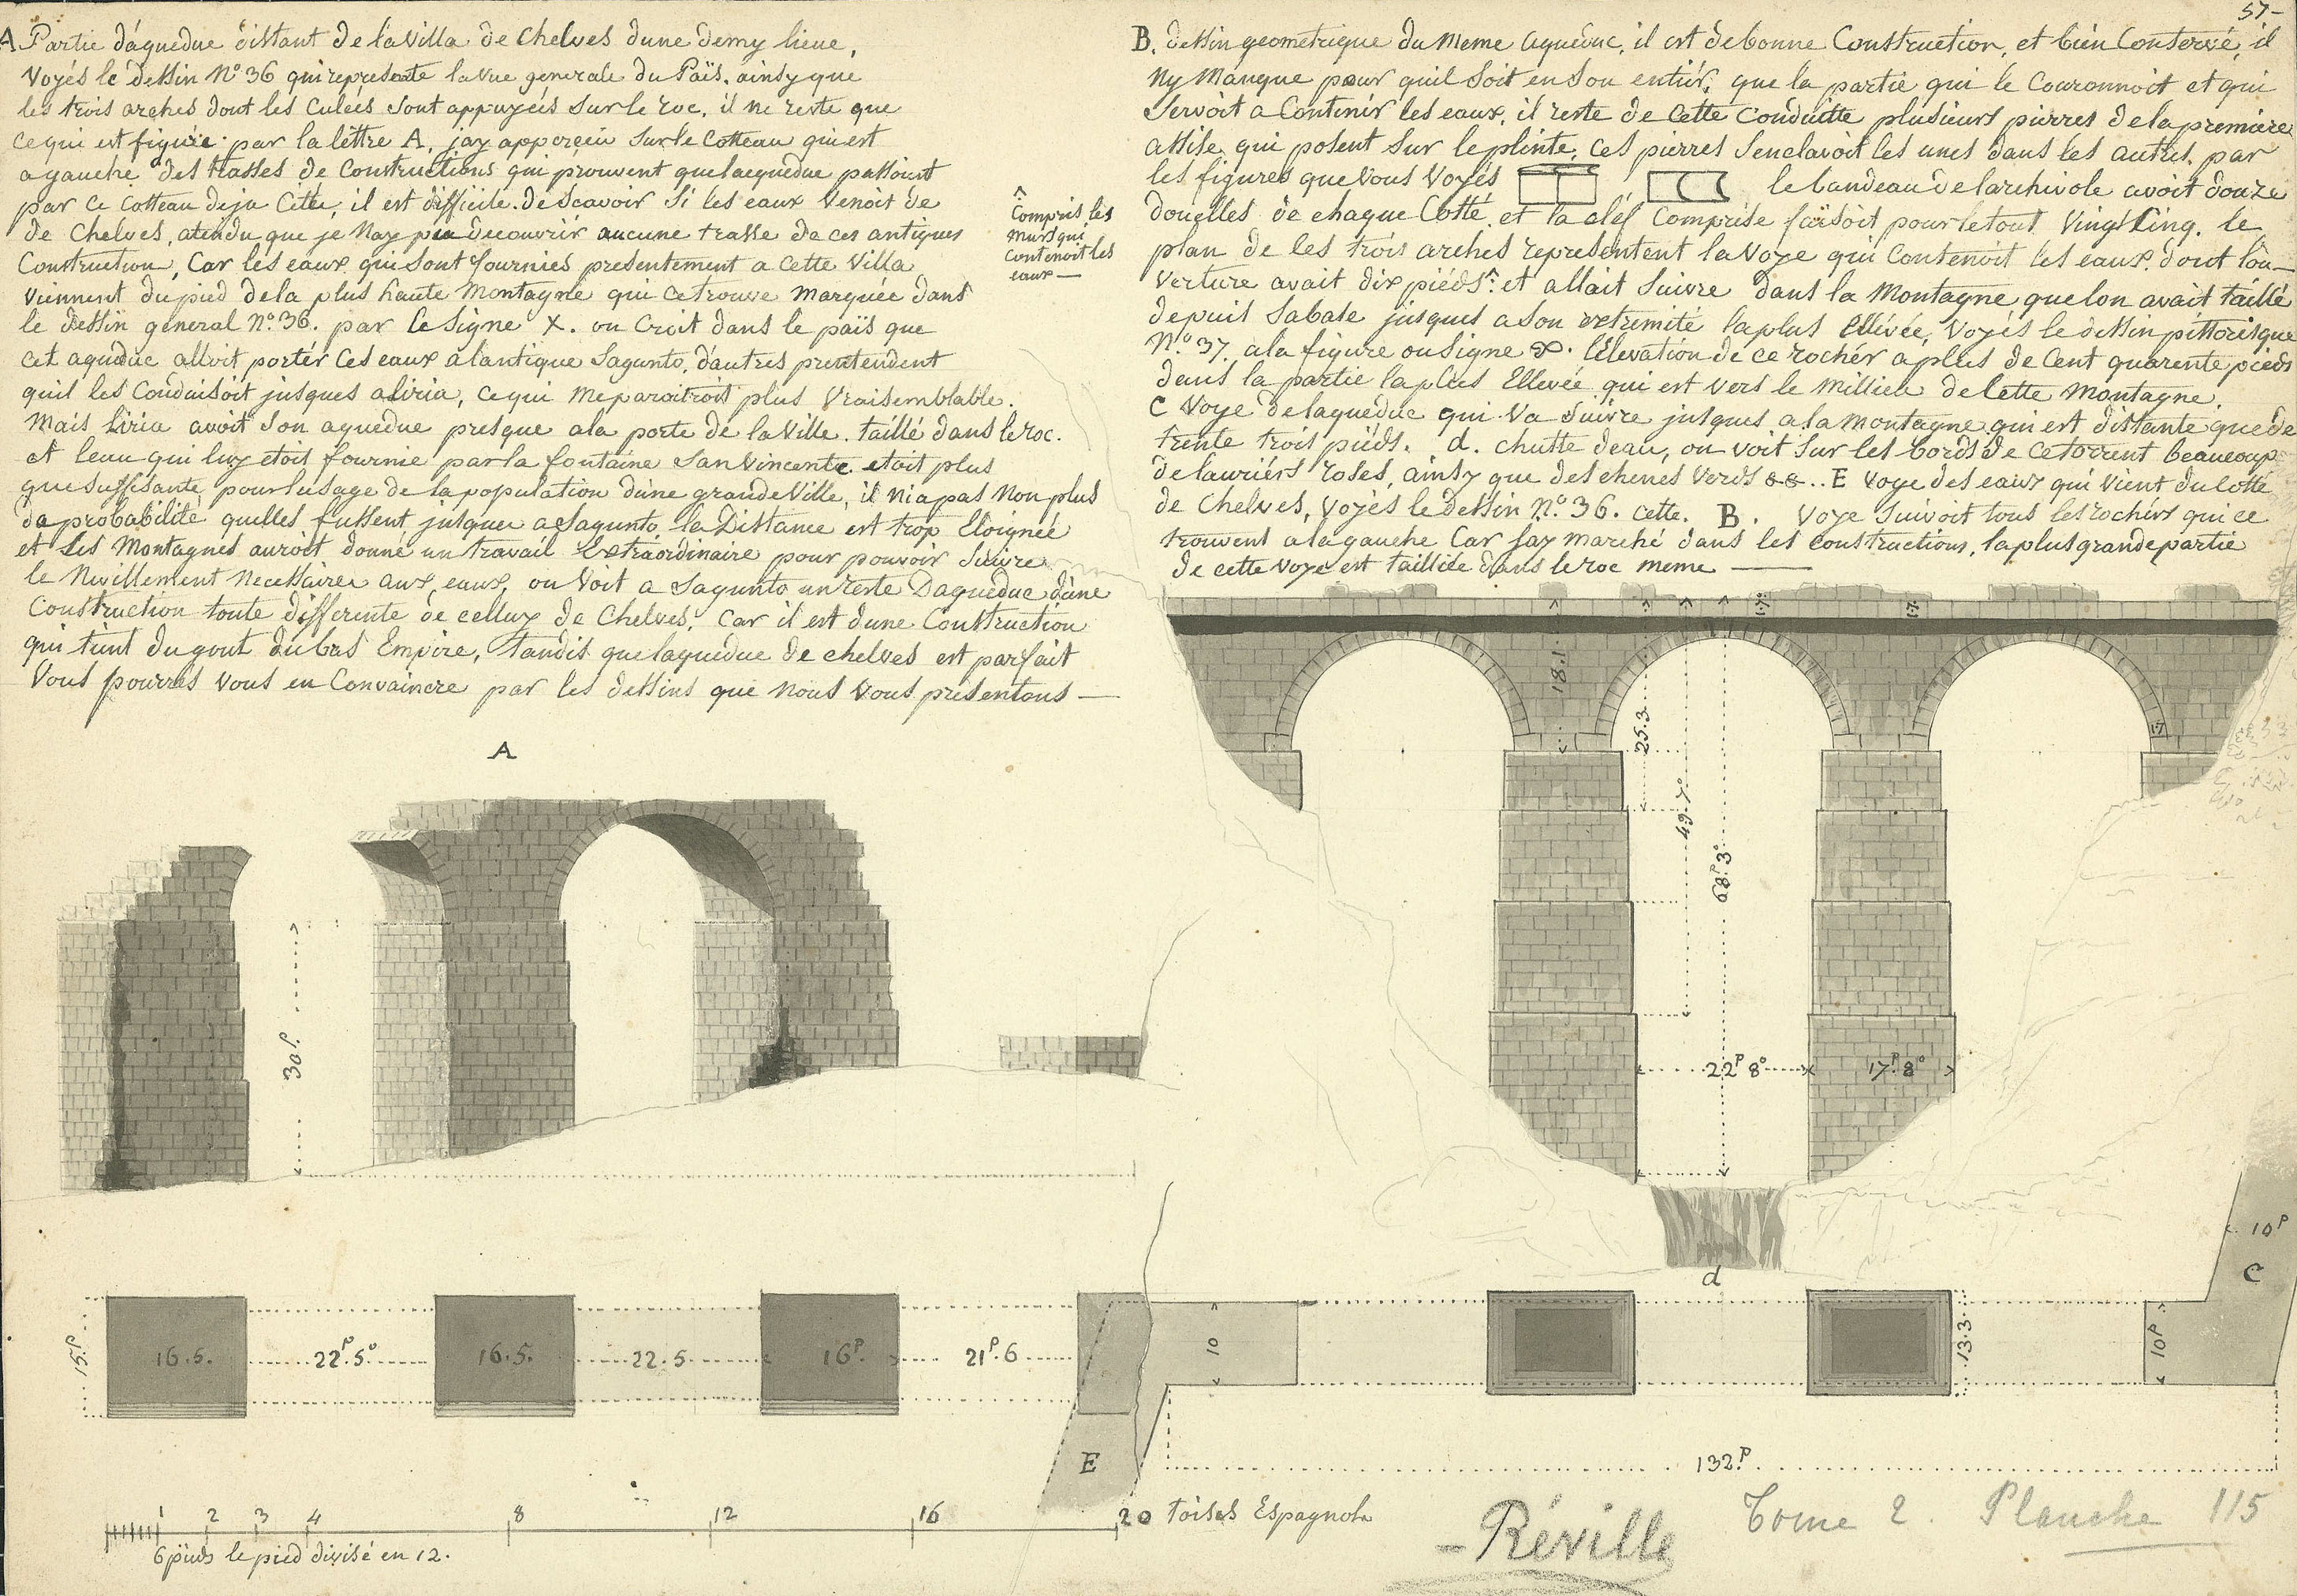 57-
A Partie d'aqueduc distant de la Villa de Chelves dune demy lieue,
Voyés le dessin N.º 36 qui represente la vue generale du Païs. ainsy que
les trois arches dont les Culées sont appuyées sur le roc. il ne reste que
ce qui est figurée par la lettre A, jay apperçeu sur le Cotteau qui est
a gauche des trasses de Constructions qui prouvent que laqueduc passoint
par ce Cotteau deja Citté, il est difficile de Scavoir Si les eaux Venoit de
de Chelves, atendu que je Nay pu decouvrir aucune trasse de ces antiques
Construction, Car les eaux qui sont fournies presentement a Cette Villa
Viennent du pied de la plus haute Montagne qui ce trouve Marquée dans
le dessin general N.º 36. par le Signe X. on Croit dans le païs que
cet aqueduc alloit portér Ces eaux a lantique Sagunto, d'autres prentendent
quil les Conduisoit jusques a liria, Ce qui Me paroitroit plus Vraisemblable.
Mais Liria avoit Son aqueduc presque a la porte de la Ville. taillé dans le roc.
et leau qui luy etoit fournie par la fontaine San Vincente etoit plus
que suffisante, pour lusage de la population dune grande Ville, il ni a pas Non plus
da probabilité quelles fussent jusques a Sagunto, la Distance est trop Eloignée
et les Montagnes auroit donné un travail Extraordinaire pour pouvoir Suivre
le Nivillement necessaires aux eaux, on Voit a Sagunto un reste Daqueduc dune
Construction toute differente de celluy de Chelves. Car il est dune Construction
qui tient du gout du bas Empire, tandis que laqueduc de chelves est parfait
Vous pourrés Vous en Convaincre par les dessins que Nous Vous presentons —
B. dessin geometrique du Meme Aqueduc, il est de bonne Construction, et bien Conservé, il
Ny Manque pour quil Soit en Son entiér, que la partie qui le Couronnoit et qui
Servoit a Contenir les eaux, il reste de Cette Conduitte plusieurs pierres de la premiere
assise qui posent Sur le plinte, ces pierres Senclavoit les unes dans les autres. par
les figures que Vous Voyés le bandeau de larchivole avoit douze
douelles de chaque Cotté et la cléf Comprise faisoit pour le tout Vingt Cinq. le
plan de les trois arches representent la Voye qui Contenoit les eaux. dont lou-
Verture avait dix piéds^. et allait Suivre dans la Montagne que lon avait taillé
^ Compris les
Murs qui
Contenoit les
eaux —
depuis Sabase jusques a Son extremité la plus Ellivée, Voyés le dessin pittoresque
N.º 37. a la figure ou Signe ∝. lElevation de ce rochér a plus de Cent quarente pieds
dans la partie la plus Ellevée qui est vers le Millieu de Cette Montagne.
C Voye de laqueduc qui Va Suivre jusques a la Montagne qui est distante que de
trente trois piéds. d. chutte deau, on voit Sur les bords de ce torrent beaucoup
de lauriérs roses, ainsy que des chenes Verds &&.. E Voye des eaux qui Vient du Cotté
de Chelves, Voyés le dessin N.º 36. Cette. B. Voye Suivoit tous les rochérs qui ce
trouvent a la gauche Car jay marché dans les Constructions, la plus grande partie
de cette Voye est taillée dans le roc meme —
A
30 P.
1.7.
1.7.
18.1
1.7
25.3
49.7º
68P.3º
22P 8º
17P.8º
d
10P
C
15.P
16.5.
22P.5º
16.5.
22.5
16P.
21P.6
10
13.3
10P
E
132.P
1 2 3 4 8 12 16 20 toises Espagnole
6 pieds le pied divisé en 12.
- Réville
Tome 2. Planche 115